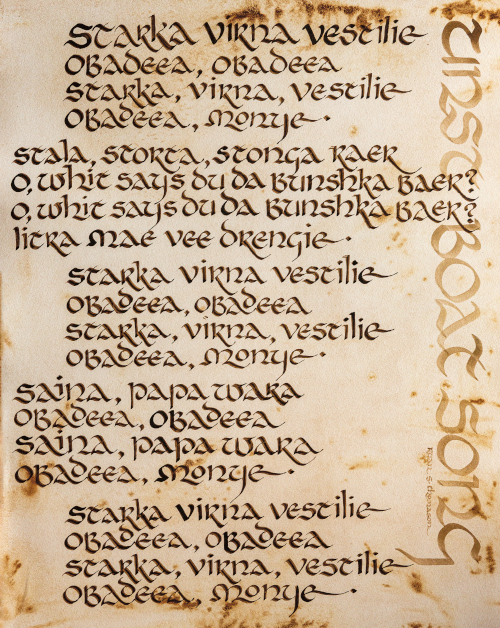 Starka virna vestilie
Obadeea, obadeea
Starka, virna, vestilie
Obadeea, Monye.
Stala, storta, stonga raer
O, whit says du da bunshka baer?
O, whit says du da bunshka baer?
litra mae vee drengie.
Starka virna vestilie
Obadeea, obadeea
Starka, virna, vestilie
Obadeea, Monye.
Saïna, papa wara
Obadeea, obadeea
Saïna, papa wara
Obadeea, Monye.
Starka virna vestilie
Obadeea, obadeea
Starka, virna, vestilie
Obadeea, Monye.
UNST BOAT SONG